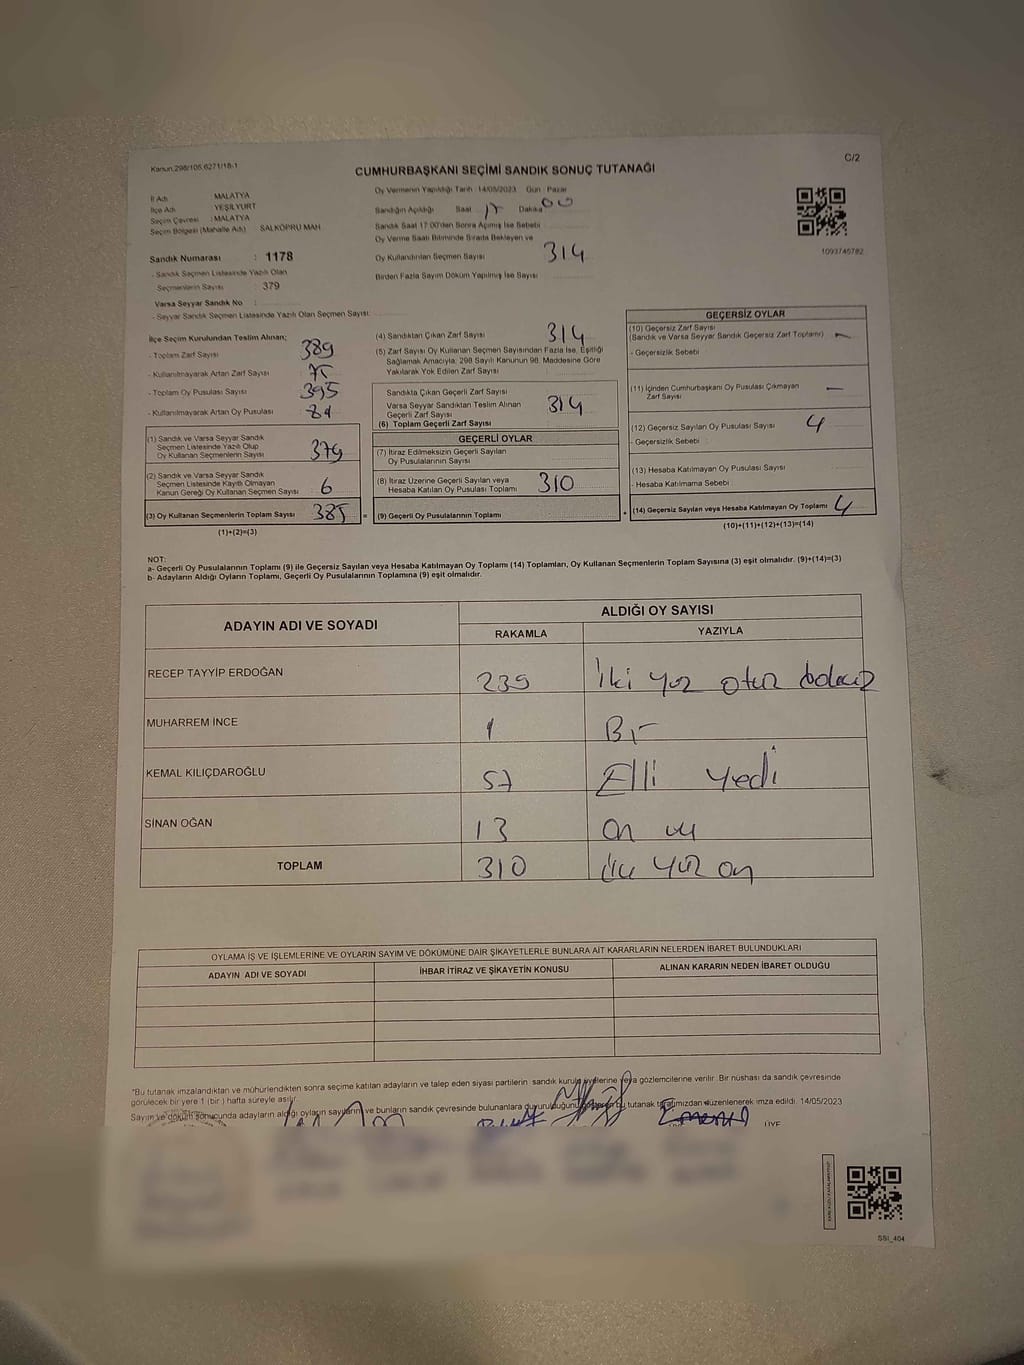 Kanun:298/105,6271/18-1
C/2
CUMHURBAŞKANI SEÇİMİ SANDIK SONUÇ TUTANAĞI
İl Adı : MALATYA
İlçe Adı : YEŞİLYURT
Seçim Çevresi : MALATYA
Seçim Bölgesi (Mahalle Adı) SALKÖPRÜ MAH
Sandık Numarası : 1178
- Sandık Seçmen Listesinde Yazılı Olan
Seçmenlerin Sayısı : 379
Varsa Seyyar Sandık No :
- Seyyar Sandık Seçmen Listesinde Yazılı Olan Seçmen Sayısı:
Oy Vermenin Yapıldığı Tarih : 14/05/2023 Gün : Pazar
Sandığın Açıldığı Saat 17 Dakika 00
Sandık Saat 17:00'den Sonra Açılmış İse Sebebi
Oy Verme Saati Bitiminde Sırada Bekleyen ve
Oy Kullandırılan Seçmen Sayısı 314
Birden Fazla Sayım Döküm Yapılmış İse Sayısı
1093745782
İlçe Seçim Kurulundan Teslim Alınan;
- Toplam Zarf Sayısı 389
- Kullanılmayarak Artan Zarf Sayısı 75
- Toplam Oy Pusulası Sayısı 395
- Kullanılmayarak Artan Oy Pusulası 81
(1) Sandık ve Varsa Seyyar Sandık
Seçmen Listesinde Yazılı Olup
Oy Kullanan Seçmenlerin Sayısı 379
(2) Sandık ve Varsa Seyyar Sandık
Seçmen Listesinde Kayıtlı Olmayan
Kanun Gereği Oy Kullanan Seçmen Sayısı 6
(3) Oy Kullanan Seçmenlerin Toplam Sayısı 385 =
(1)+(2)=(3)
(4) Sandıktan Çıkan Zarf Sayısı 314
(5) Zarf Sayısı Oy Kullanan Seçmen Sayısından Fazla İse, Eşitliği
Sağlamak Amacıyla, 298 Sayılı Kanunun 98. Maddesine Göre
Yakılarak Yok Edilen Zarf Sayısı
Sandıkta Çıkan Geçerli Zarf Sayısı
Varsa Seyyar Sandıktan Teslim Alınan
Geçerli Zarf Sayısı 314
(6) Toplam Geçerli Zarf Sayısı
GEÇERLİ OYLAR
(7) İtiraz Edilmeksizin Geçerli Sayılan
Oy Pusulalarının Sayısı
(8) İtiraz Üzerine Geçerli Sayılan veya
Hesaba Katılan Oy Pusulası Toplamı 310
(9) Geçerli Oy Pusulalarının Toplamı +
GEÇERSİZ OYLAR
(10) Geçersiz Zarf Sayısı
(Sandık ve Varsa Seyyar Sandık Geçersiz Zarf Toplamı) —
- Geçersizlik Sebebi :
(11) İçinden Cumhurbaşkanı Oy Pusulası Çıkmayan
Zarf Sayısı —
(12) Geçersiz Sayılan Oy Pusulası Sayısı 4
- Geçersizlik Sebebi :
(13) Hesaba Katılmayan Oy Pusulası Sayısı
- Hesaba Katılmama Sebebi :
(14) Geçersiz Sayılan veya Hesaba Katılmayan Oy Toplamı 4
(10)+(11)+(12)+(13)=(14)
NOT:
a- Geçerli Oy Pusulalarının Toplamı (9) ile Geçersiz Sayılan veya Hesaba Katılmayan Oy Toplamı (14) Toplamları, Oy Kullanan Seçmenlerin Toplam Sayısına (3) eşit olmalıdır. (9)+(14)=(3)
b- Adayların Aldığı Oyların Toplamı, Geçerli Oy Pusulalarının Toplamına (9) eşit olmalıdır.
ADAYIN ADI VE SOYADI
ALDIĞI OY SAYISI
RAKAMLA YAZIYLA
RECEP TAYYİP ERDOĞAN 239 İki yüz otuz dokuz
MUHARREM İNCE 1 Bir
KEMAL KILIÇDAROĞLU 57 Elli yedi
SİNAN OĞAN 13 on üç
TOPLAM 310 üç yüz on
OYLAMA İŞ VE İŞLEMLERİNE VE OYLARIN SAYIM VE DÖKÜMÜNE DAİR ŞİKAYETLERLE BUNLARA AİT KARARLARIN NELERDEN İBARET BULUNDUKLARI
ADAYIN ADI VE SOYADI İHBAR İTİRAZ VE ŞİKAYETİN KONUSU ALINAN KARARIN NEDEN İBARET OLDUĞU
"Bu tutanak imzalandıktan ve mühürlendikten sonra seçime katılan adayların ve talep eden siyasi partilerin sandık kurulu üyelerine veya gözlemcilerine verilir. Bir nüshası da sandık çevresinde
görülecek bir yere 1 (bir) hafta süreyle asılır.
Sayım ve döküm sonucunda adayların aldığı oyların sayılarını ve bunların sandık çevresinde bulunanlara duyurulduğunu gösteren bu tutanak tarafımızdan düzenlenerek imza edildi. 14/05/2023
ÜYE
SSİ_404